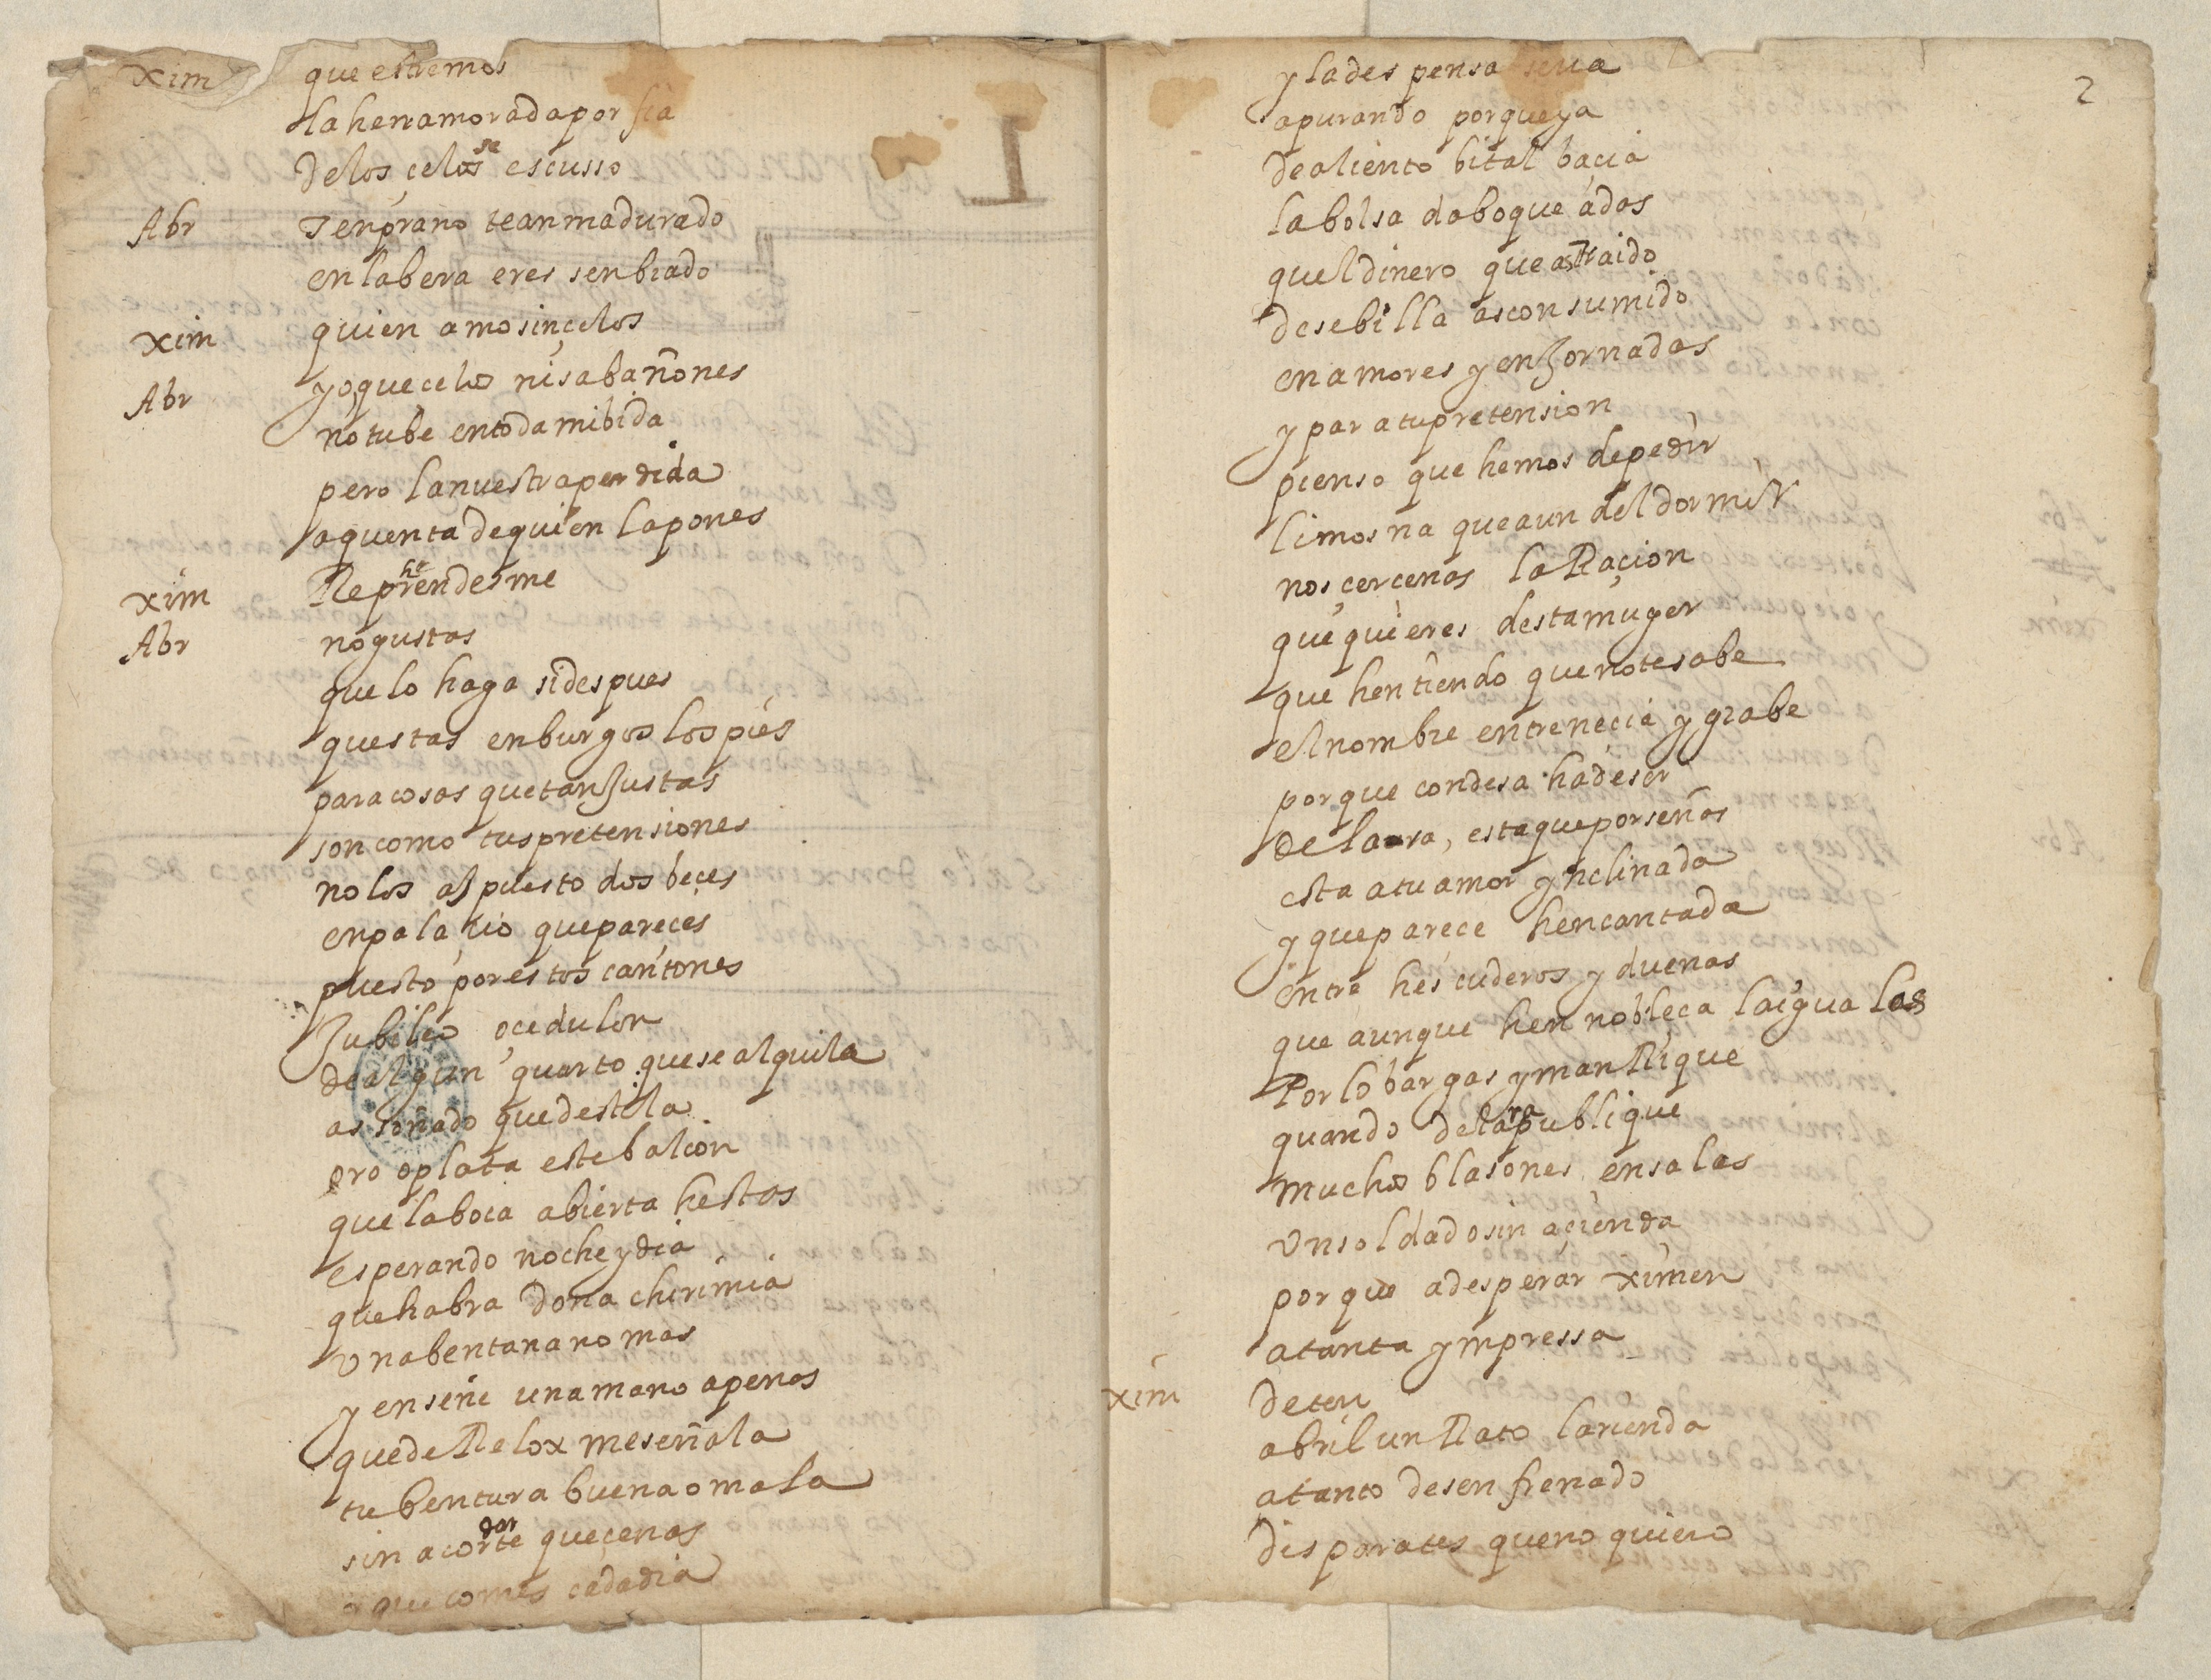 Xim que estremos
la henamorada porfia
de los çelos se escusso
Abr Tenprano te an madurado
en la bera eres senbrado
Xim quien amo sin çelos
Abr yo, que celos ni sabañones
no tube en toda mi bida
pero la nuestra perdida
a quenta de quien la pones
Xim Reprehendesme
Abr no gustas
que lo haga si despues
questas en burgos los pies
para cosas que tan Justas
son como tus pretensiones
no los as puesto dos beçes
en palaçio que pareçes
puesto por estos cantones
Jubileo o cedulon
de algun quarto que se alquila
as soñado que destila
oro o plata este balcon
que la boca abierta hestas
esperando noche y dia
que habra doña chirimia
una bentana no mas
y enseñe una mano apenas
que de Relox me señala
tu bentura buena o mala
sin acordarte que çenas
o que comes cada dia
2
y la despensa seria
apurando porque ya
de aliento bital baçia
la bolsa da boqueadas
quel dinero que as traido
de sebilla as consumido
en amores y en Jornadas
y para tu pretension
pienso que hemos de pedir
limosna que aun del dormir
nos çercenas la Raçion
que quieres desta muger
que hentiendo que no te sabe
el nombre entre neçia y grabe
porque condesa ha de ser
de lara, esta que por señas
esta a tu amor ynclinada
y que parece hencantada
entre hescuderos y dueñas
que aunque hen nobleça la igualas
Por lo bargas y manRique
quando de lara publique
muchos blasones en salas
un soldado sin açienda
porque a desperar ximen
a tanta ympressa
Xim deten
abril un Rato la rienda
a tanto desenfrenado
disparates que no quiero